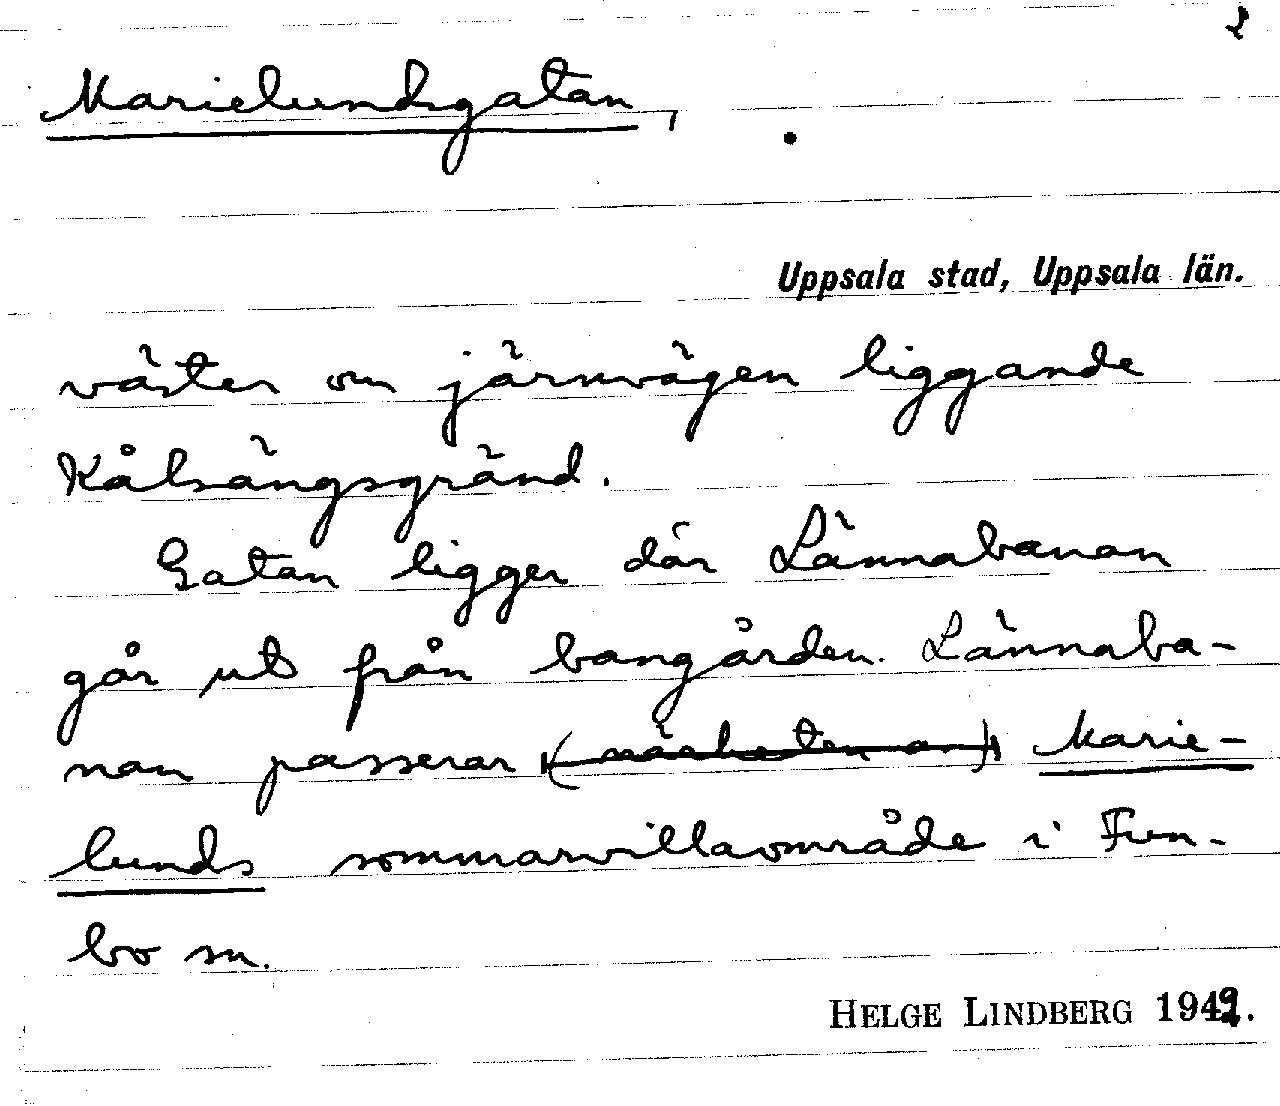 2
Marielundsgatan,
Uppsala stad, Uppsala län.
väster om järnvägen liggande
Kålsängsgränd.
Gatan ligger där Lännabanan
går ut från bangården. Lännaba-
nan passerar (närheten av) Marie-
lunds sommarvillaområde i Fun-
bo sn.
HELGE LINDBERG 1949.